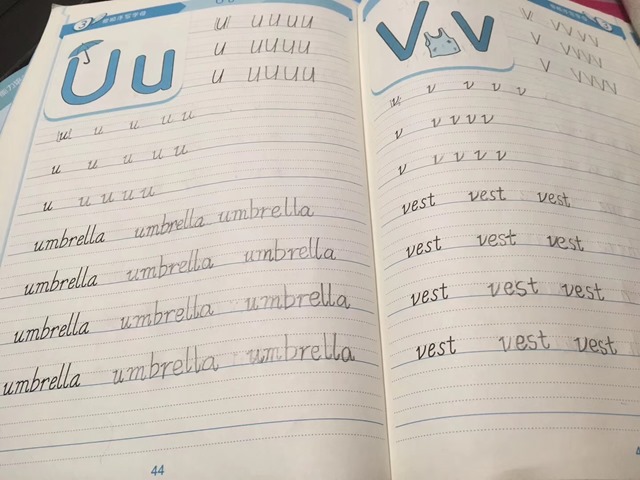 3
Uu
U U U U U
U U U U U
U U U U U
u u u u u
u u u u u
u u u u u
umbrella umbrella umbrella
umbrella umbrella umbrella
umbrella umbrella umbrella
umbrella umbrella umbrella
44
3
Vv
V V V V V
V V V V V
V V V V V
v v v v v
v v v v v
v v v v v
vest vest vest
vest vest vest
vest vest vest
vest vest vest